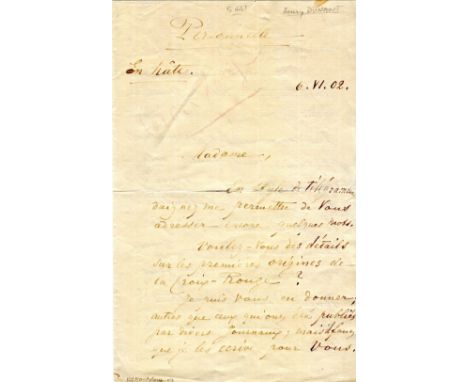 Henry Dunant
Personnelle
En hâte.
6. VI. 02.
Madame,
En de télégramme
daignez me permettre de Vous
adresser encore quelques mots.
Voulez-Vous des détails
sur les premières origines de
la Croix-Rouge ?
Je puis Vous en donner,
autres que ceux qui ont été publiés
par divers Journaux ; mais
que je les écrive pour Vous.